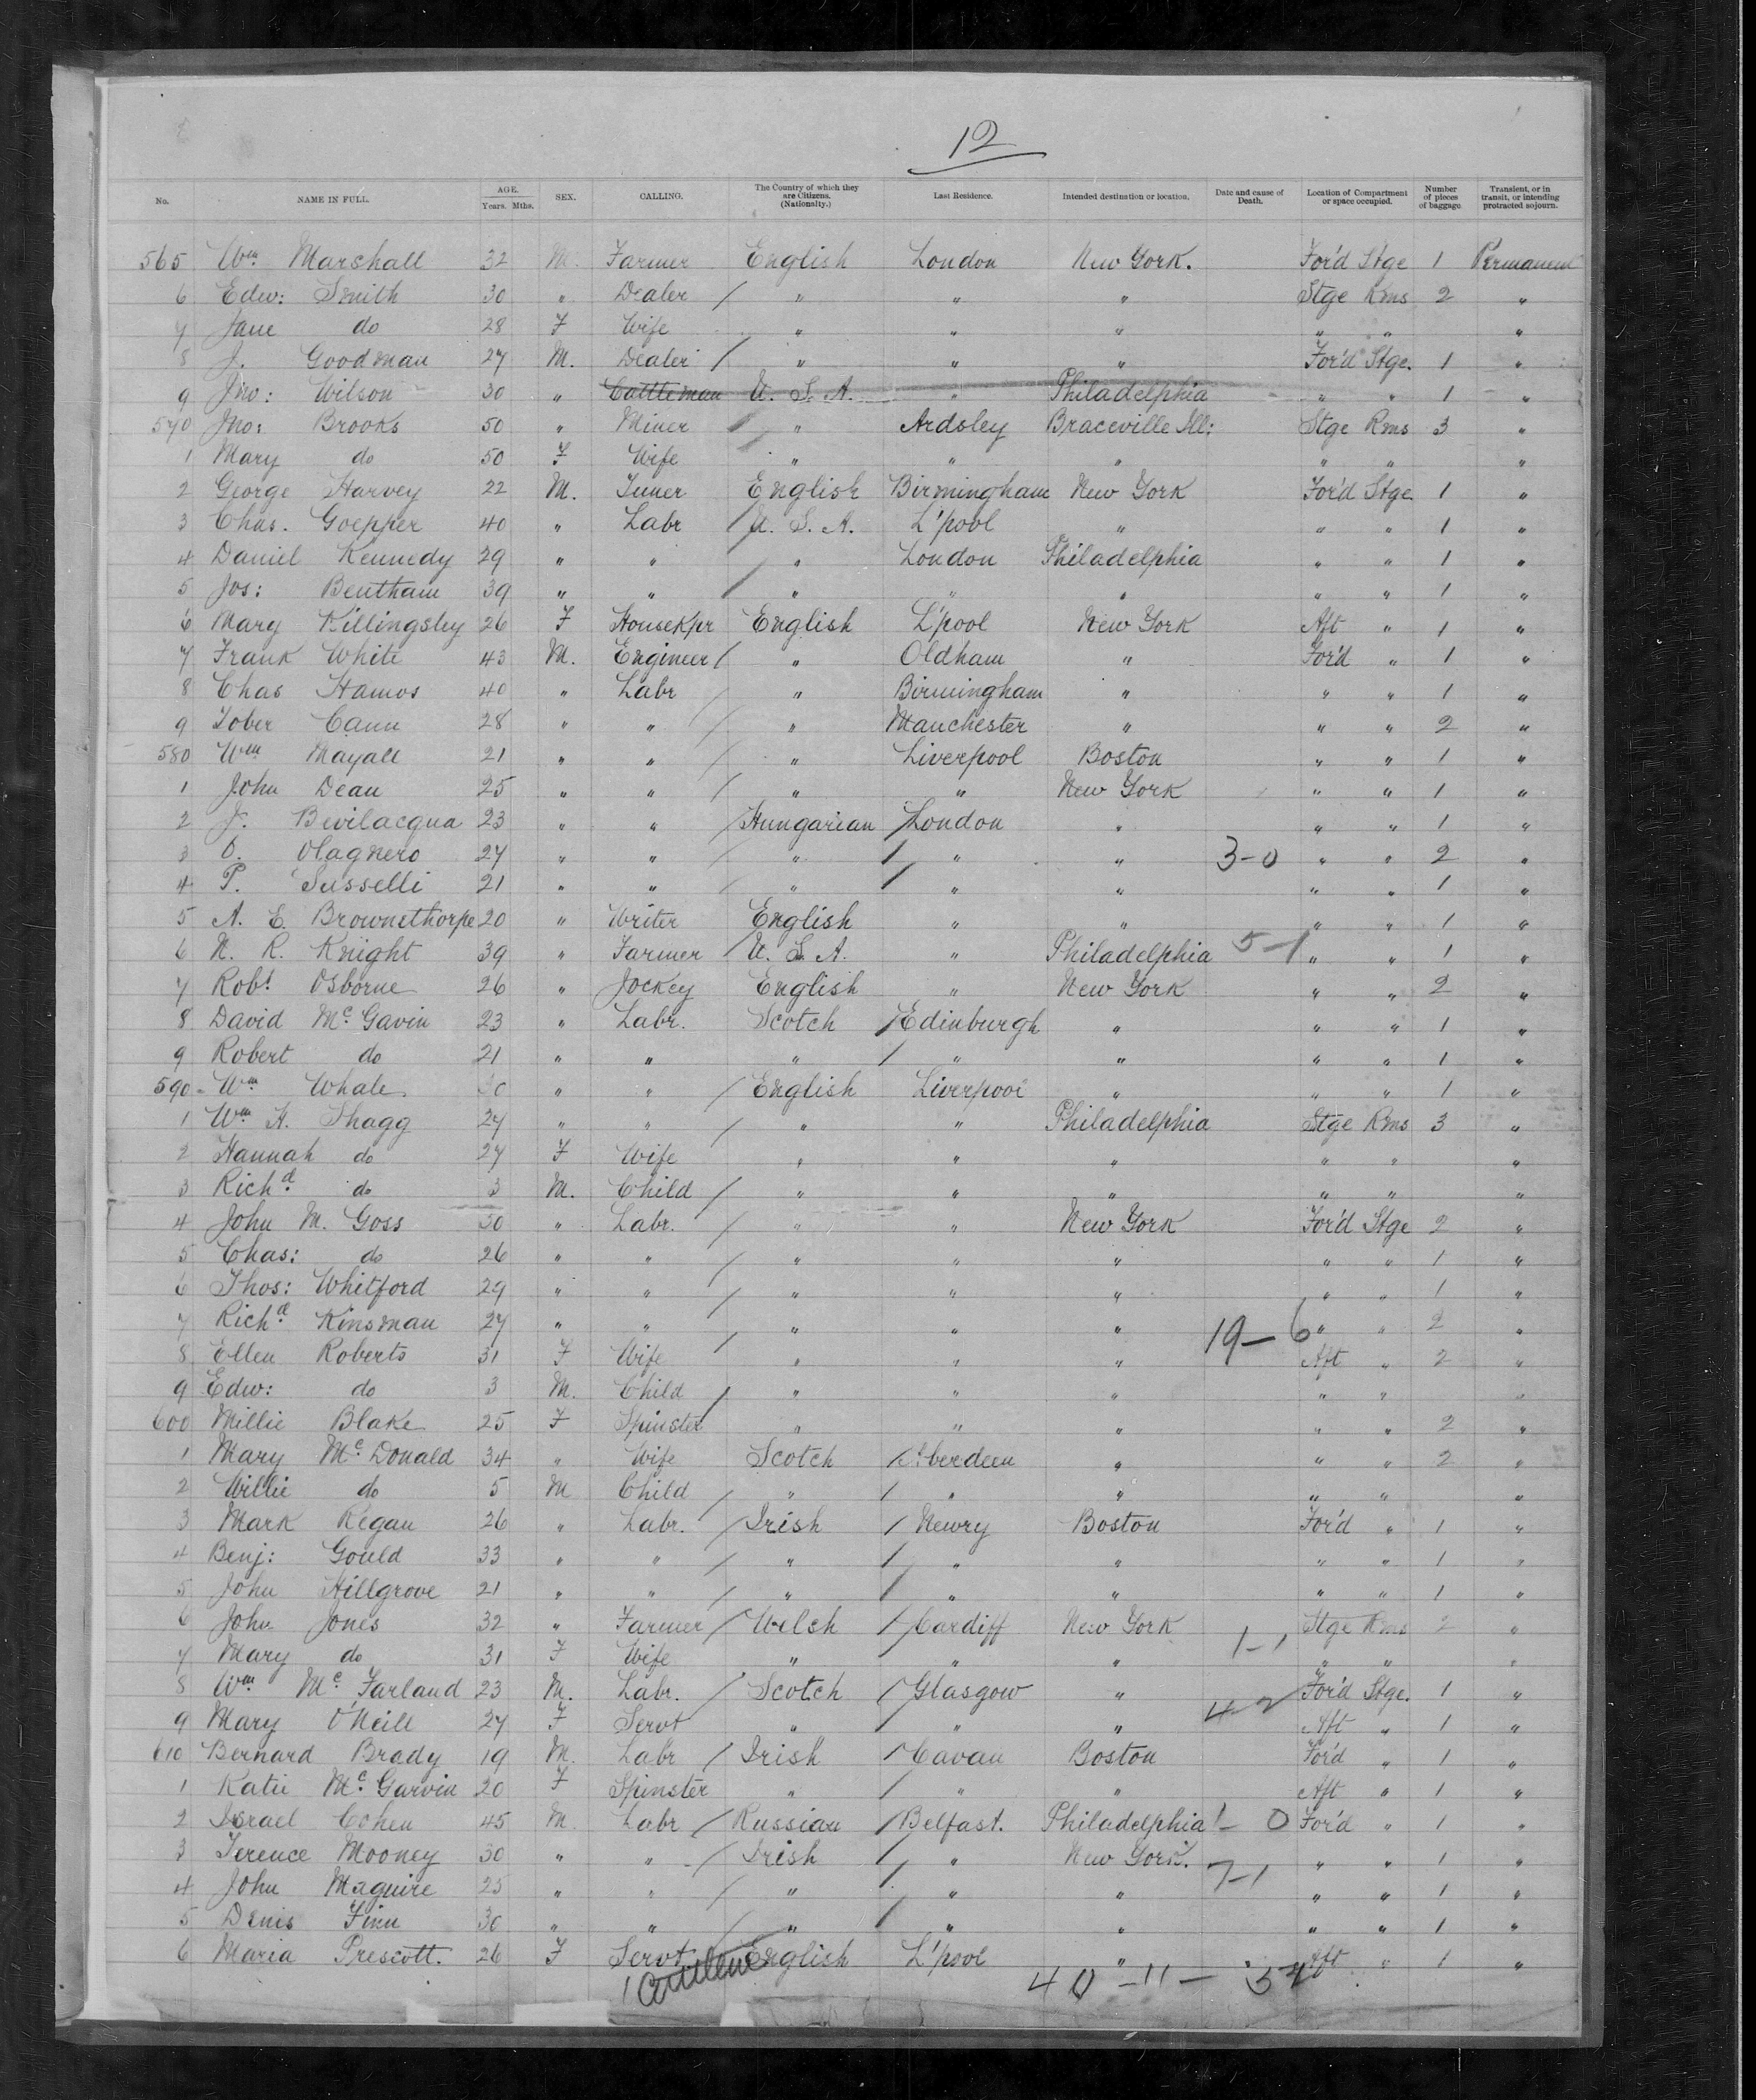 12
No. NAME IN FULL. AGE. Years. Mths. SEX. CALLING. The Country of which they are Citizens. (Nationality.) Last Residence. Intended destination or location. Date and cause of Death. Location of Compartment or space occupied. Number of pieces of baggage. Transient, or in transit, or intending protracted sojourn.
565 Wm Marshall 32 M. Farmer English London New York. For'd Stge 1 Permanent
6 Edw: Smith 30 " Dealer / " " " Stge Rms 2 "
7 Jane do 28 F Wife " " " " " "
8 J. Goodman 27 M. Dealer / " " " For'd Stge. 1 "
9 Jno: Wilson 30 " Cattleman U. S. A. " Philadelphia " " 1 "
570 Jno: Brooks 50 " Miner / " Ardsley Braceville Ill: Stge Rms 3 "
1 Mary do 50 F Wife " " " " " "
2 George Harvey 22 M. English Birmingham New York For'd Stge 1 "
3 Chas. Goepper 40 " Labr / U. S. A. L'pool " " " 1 "
4 Daniel Kennedy 29 " " " London Philadelphia " " 1 "
5 Jos: Bentham 39 " " / " " " " " 1 "
6 Mary Killingsley 26 F HouseKpr English L'pool New York Aft " 1 "
7 Frank White 43 M. Engineer / " Oldham " For'd " 1 "
8 Chas Hamos 40 " Labr / " Birmingham " " " 1 "
9 Tober Cann 28 " " / " Manchester " " " 2 "
580 Wm Mayall 21 " " / " Liverpool Boston " " 1 "
1 John Dean 25 " " / " " New York " " 1 "
2 J. Bevilacqua 23 " " / Hungarian / London " " " 1 "
3 O. Olagnero 27 " " / " / " " 3-0 " " 2 "
4 P. Susselli 21 " " / " / " " " " 1 "
5 A. E. Brownethorpe 20 " Writer English " " " " 1 "
6 N. R. Knight 39 " Farmer / U. S. A. " Philadelphia 5-1 " " 1 "
7 Robt Osborne 26 " Jockey English " New York " " 2 "
8 David Mc Gavin 23 " Labr. Scotch / Edinburgh " " " 1 "
9 Robert do 21 " " " / " " " " 1 "
590 Wm Whale " " / English Liverpool " " " 1 "
1 Wm H. Shagg 27 " " / " " Philadelphia Stge Rms 3 "
2 Hannah do 27 F Wife " " " " " "
3 Richd do 3 M. Child / " " " " " "
4 John M. Goss 30 " Labr. / " " New York For'd Stge 2 "
5 Chas: do 26 " " / " " " " " 1 "
6 Thos: Whitford 29 " " / " " " " " 1 "
7 Richd Kinsman 27 " " / " " " 19-6 " " 2 "
8 Ellen Roberts 31 F Wife / " " " Aft " 2 "
9 Edw: do 3 M. Child / " " " " " "
600 Millie Blake 25 F Spinster / " " " " " 2 "
1 Mary Mc Donald 34 " Wife Scotch / Aberdeen " " " 2 "
2 Willie do 5 M Child / " / " " " " "
3 Mark Regan 26 " Labr. / Irish / Newry Boston For'd " 1 "
4 Benj: Gould 33 " " / " / " " " " 1 "
5 John Hillgrove 21 " " / " / " " " " 1 "
6 John Jones 32 " Farmer / Welsh / Cardiff New York 1-1 Stge Rms 2 "
7 Mary do 31 F Wife " " " " " "
8 Wm Mc Farland 23 M. Labr. / Scotch / Glasgow " 4-2 For'd Stge. 1 "
9 Mary O'Neill 27 F Servt " / " " Aft " 1 "
610 Bernard Brady 19 M. Labr / Irish / Cavan Boston For'd " 1 "
1 Katie Mc Garvin 20 F Spinster " / " " Aft " 1 "
2 Israel Cohen 45 M. Labr / Russian / Belfast. Philadelphia 1-0 For'd " 1 "
3 Terence Mooney 30 " " / Irish / " New York. 7-1 " " 1 "
4 John Maguire 25 " " / " / " " " " 1 "
5 Denis Finn 30 " " / " / " " " " 1 "
6 Maria Prescott. 26 F Servt. English L'pool " Aft " 1 "
40 - 11 -